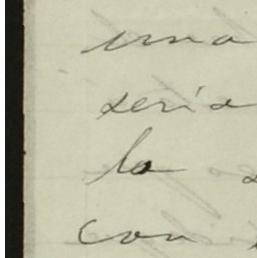 una
seria
la
con